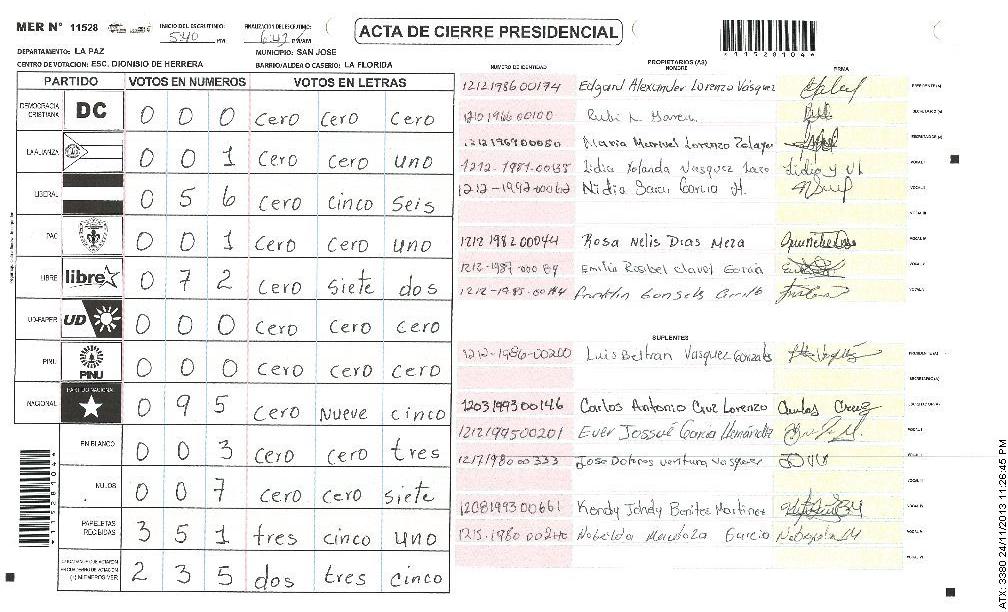 MER N° 11528
INICIO DEL ESCRUTINIO: 5:40 PM
FINALIZACION DEL ESCRUTINIO: PM/AM
ACTA DE CIERRE PRESIDENCIAL
*11528104*
DEPARTAMENTO: LA PAZ
MUNICIPIO: SAN JOSE
CENTRO DE VOTACION: ESC. DIONISIO DE HERRERA
BARRIO/ALDEA O CASERIO: LA FLORIDA
PARTIDO VOTOS EN NUMEROS VOTOS EN LETRAS
DEMOCRACIA CRISTIANA DC 0 0 0 cero cero cero
LA ALIANZA 0 0 1 cero cero uno
LIBERAL 0 5 6 cero cinco seis
PAC 0 0 1 cero cero uno
LIBRE libre 0 7 2 cero siete dos
UD-FAPER UD 0 0 0 cero cero cero
PINU PINU 0 0 0 cero cero cero
NACIONAL PARTIDO NACIONAL 0 9 5 cero nueve cinco
EN BLANCO 0 0 3 cero cero tres
NULOS 0 0 7 cero cero siete
PAPELETAS RECIBIDAS 3 5 1 tres cinco uno
2 3 5 dos tres cinco
NUMERO DE IDENTIDAD
PROPIETARIOS (AS)
NOMBRE
FIRMA
1212198600174 Edgard Alexander Lorenzo Vasquez
Maria Marivel Lorenzo Zelaya
1212-1981-00135 Lidia Yolanda Vasquez
1212-1992-00062 Nidia Garcia H.
1212198200044 Rosa Nelis Dias Meza
Emilia Rosibel Clavel Garcia
SUPLENTES
1212-1986-00200 Luis Beltran Vasquez Gonzales
1203199300146 Carlos Antonio Cruz Lorenzo Carlos Cruz
1212199500201 Ever Jossué Garcia Hernández
1217198000333 Jose Dolores Ventura Vasquez
1208199300661 Kendy Johdy Benitez Martinez
Mendoza Garcia
*11528104*
ATX: 3380 24/11/2013 11:26:45 PM